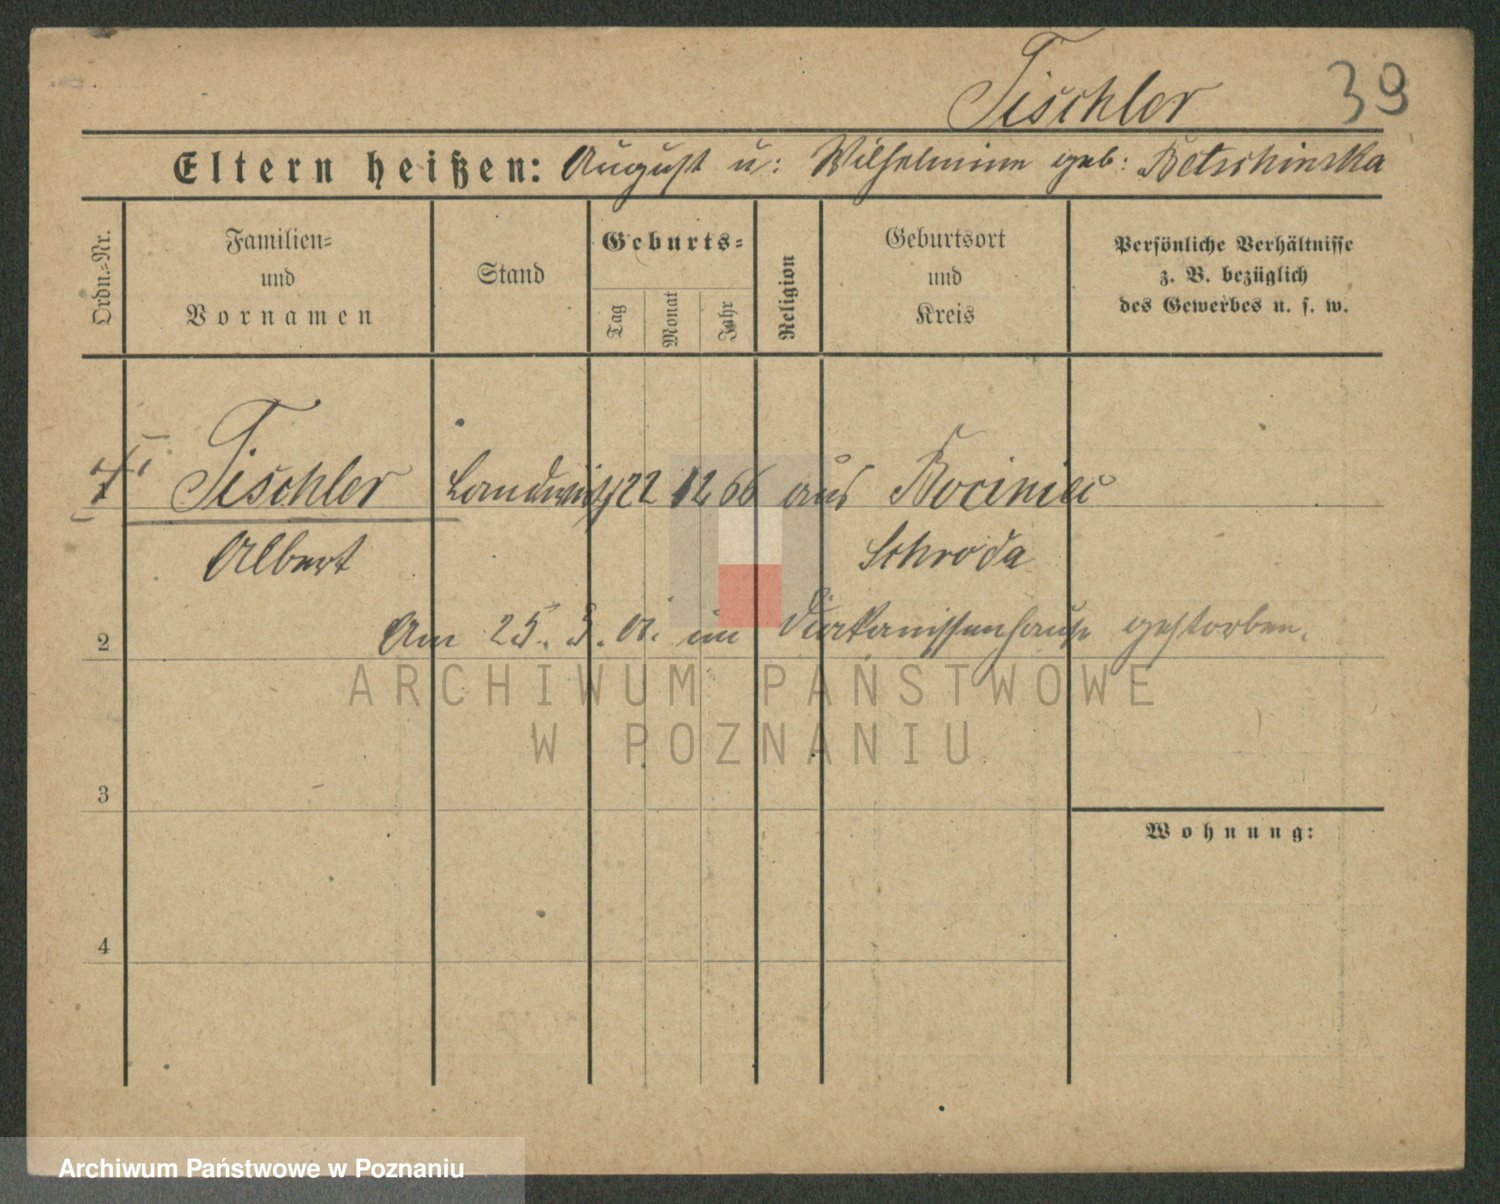 Tischler 39
Eltern heißen: August u: Wilhelmine geb:
Ordn.=Nr.
Familien=
und
Vornamen
Stand
Geburts=
Tag
Monat
Jahr
Religion
Geburtsort
und
Kreis
Persönliche Verhältnisse
z. B. bezüglich
des Gewerbes u. s. w.
Tischler Landwirt 22 12 66 aus Bociniec
Albert Schroda
2 Am 25. 3. 01. im Diakonissenhause gestorben.
ARCHIWUM PAŃSTWOWE
W POZNANIU
3
Wohnung:
4
Archiwum Państwowe w Poznaniu